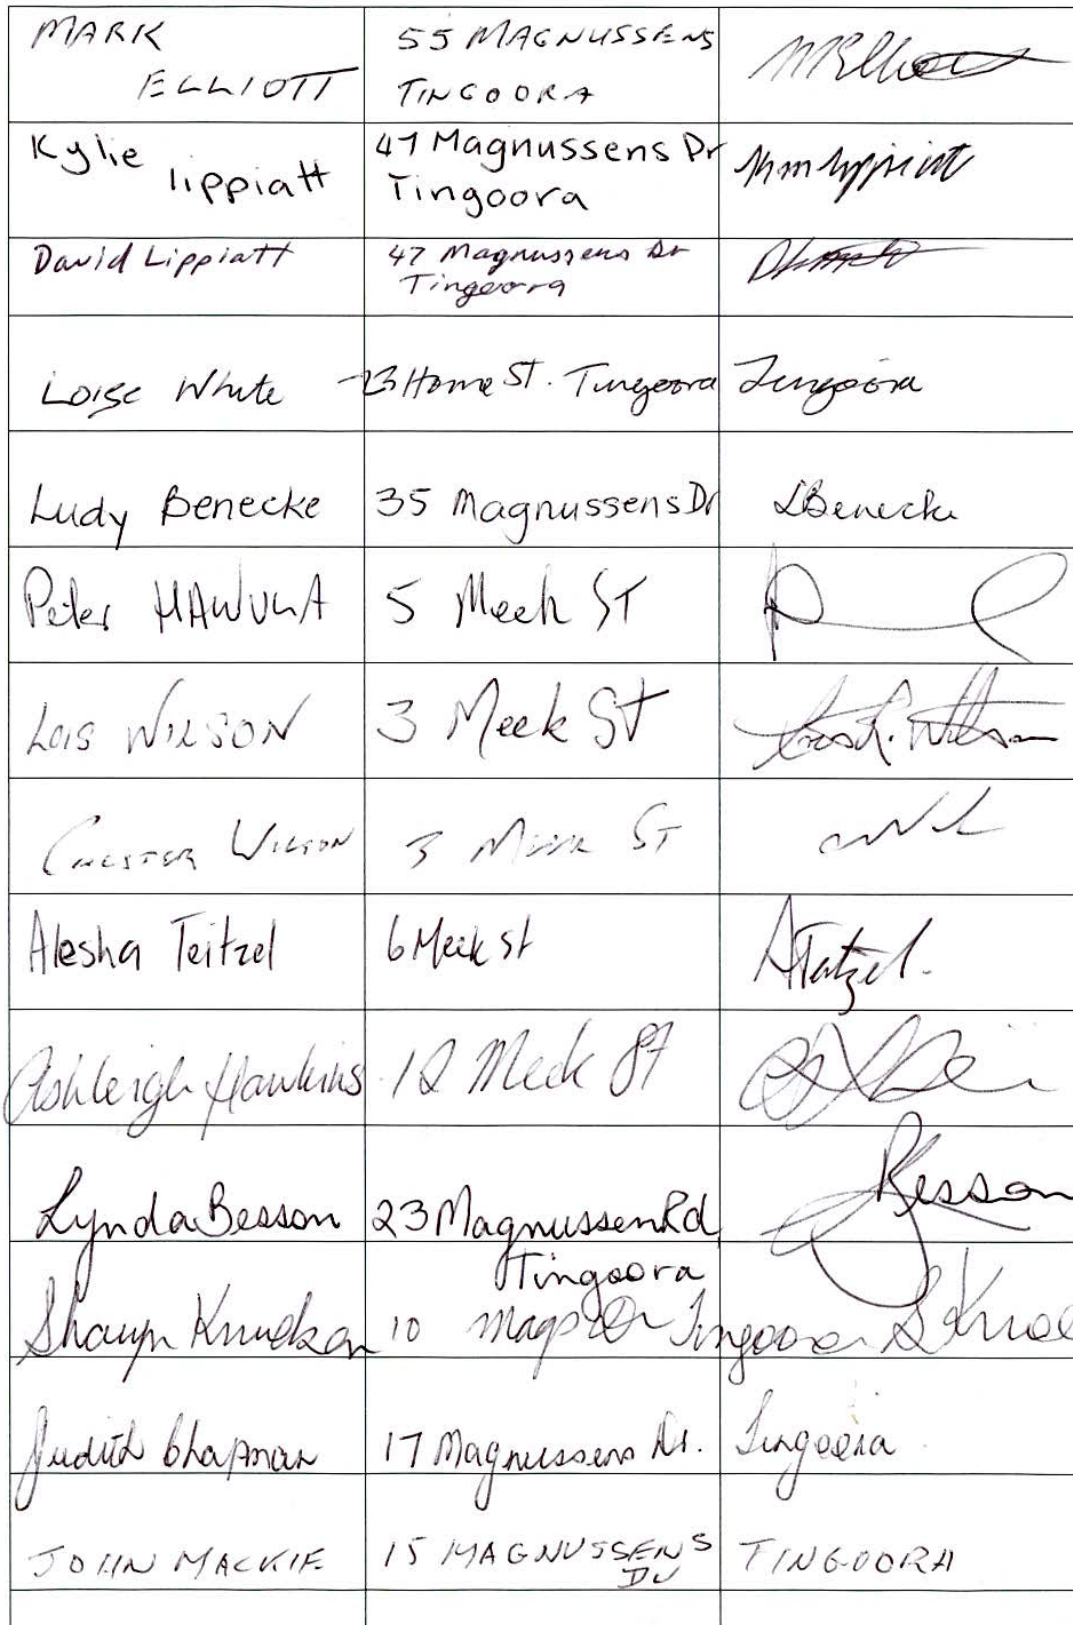 MARK 55 MAGNUSSENS
ELLIOTT TINGOORA
Kylie 47 Magnussens Dr
lippiatt Tingoora
David Lippiatt 47 Magnussens Dr
Tingoora
White 23 Home St. Tingoora Tingoora
Ludy Benecke 35 Magnussens Dr LBenecke
Peter 5 Meek ST
LOIS WILSON 3 Meek ST Lois R. Wilson
CHESTER WILSON 3 MEEK ST
Alesha Teitzel 6 Meek st ATeitzel.
Ashleigh Hawkins 12 Meek St
Lynda Besson 23 Magnussen Rd Besson
Tingoora
Knudsen 10 Tingoora
Judith Chapman 17 Magnussens Dr. Tingoora
JOHN MACKIE 15 MAGNUSSENS TINGOORA